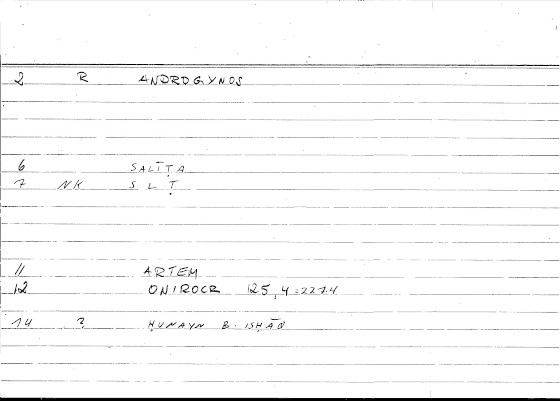 2 R ANDROGYNOS
6 SALĪṬA
7 NK S L Ṭ
11 ARTEM
12 ONIROCR 125,4=227.4
14 ? ḤUNAYN B. ISḤĀQ